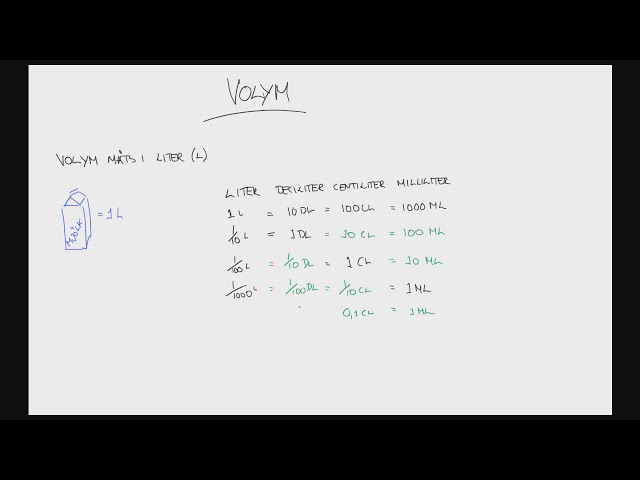 VOLYM
VOLYM MÄTS I LITER (L)
MJÖLK = 1 L
LITER DECILITER CENTILITER MILLILITER
1 L = 10 DL = 100 CL = 1000 ML
1/10 L = 1 DL = 10 CL = 100 ML
1/100 L = 1/10 DL = 1 CL = 10 ML
1/1000 L = 1/100 DL = 1/10 CL = 1 ML
0,1 CL = 1 ML